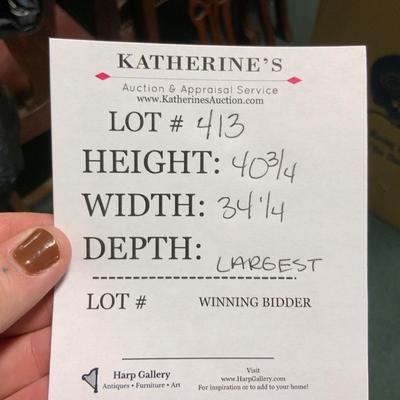 KATHERINE'S
Auction & Appraisal Service
www.KatherinesAuction.com
LOT # 413
HEIGHT: 40 3/4
WIDTH: 34 1/4
DEPTH:
LARGEST
LOT # WINNING BIDDER
Harp Gallery
Antiques • Furniture • Art
Visit
www.HarpGallery.com
For inspiration or to add to your home!